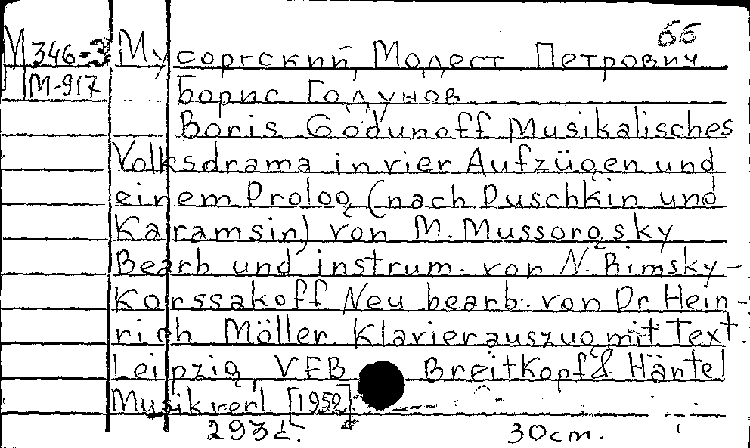 бб
М 346-3 Мусоргский, Модест Петрович
М-917 Борис Годунов
Boris Godunoff Musikalisches
Volksdrama in vier Aufzügen und
einem Prolog (nach Puschkin und
Karamsin) von M. Mussorgsky
Bearb und instrum. von N. Rimsky-
Korssakoff Neu bearb. von Dr Hein-
rich Möller. Klavierauszug mit Text.
Leipzig, VEB Breitkopf & Härtel
Musikverl [1952]
293 с. 30cm.